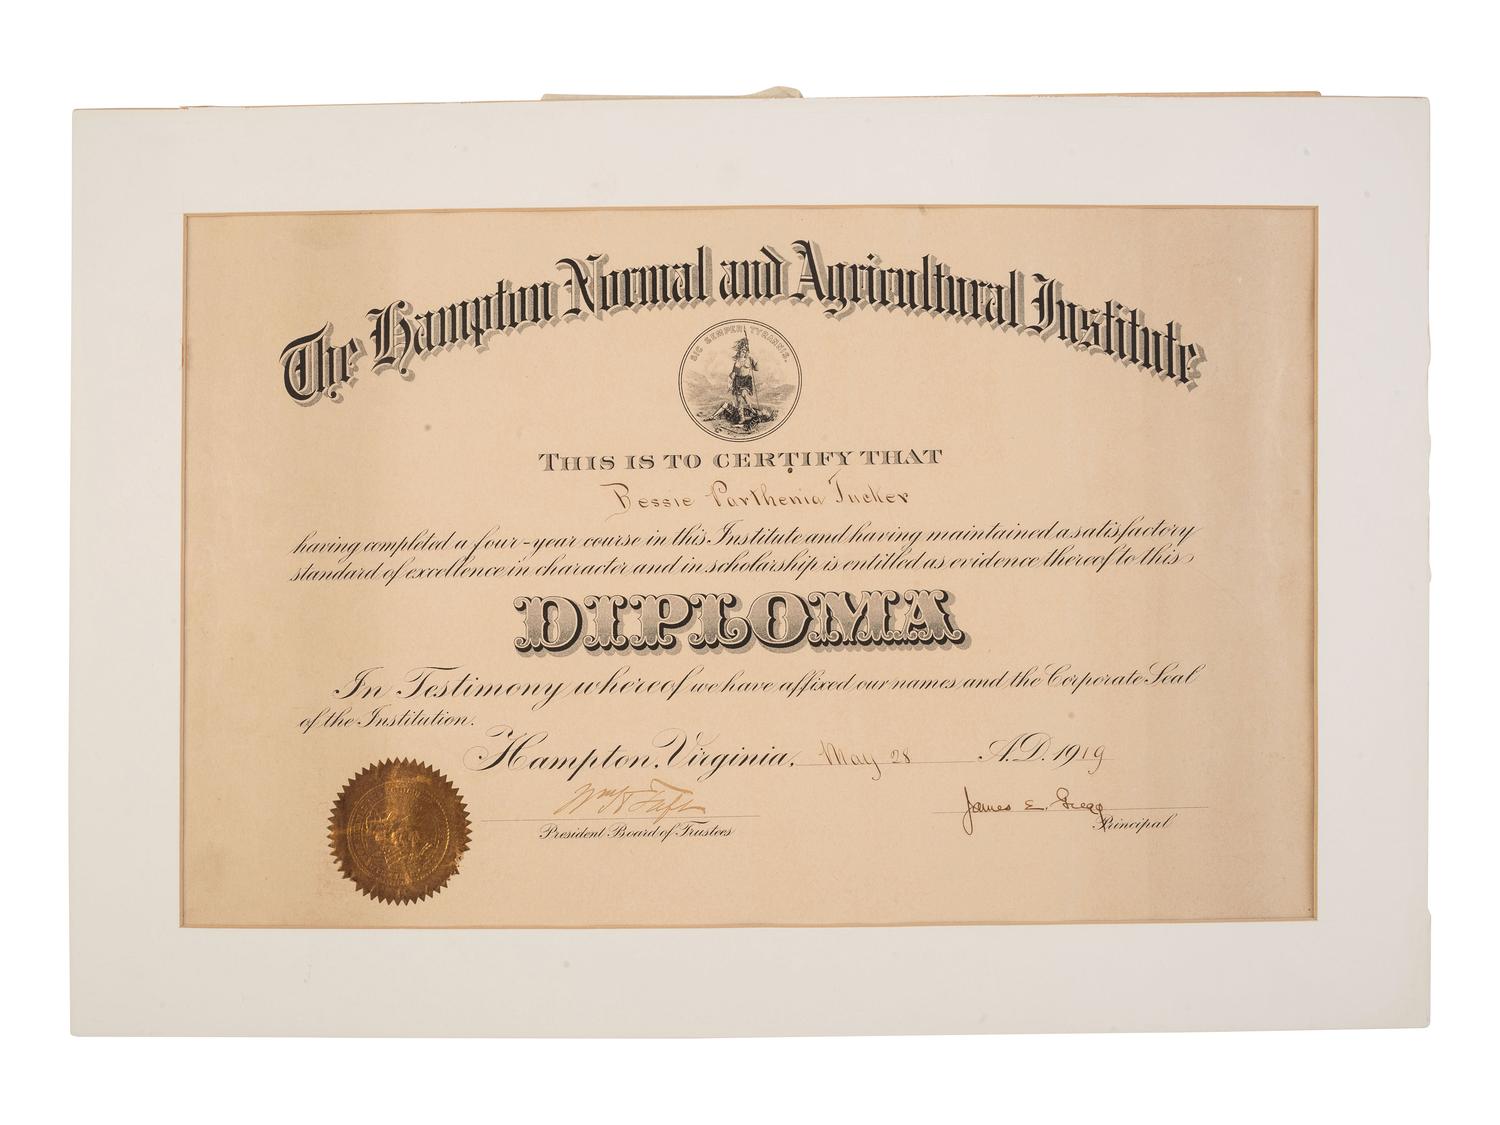 The Hampton Normal and Agricultural Institute
SIC SEMPER TYRANNIS.
THIS IS TO CERTIFY THAT
Bessie Parthenia Tucker
having completed a four-year course in this Institute and having maintained a satisfactory
standard of excellence in character and in scholarship is entitled as evidence thereof to this
DIPLOMA
In Testimony whereof we have affixed our names and the Corporate Seal
of the Institution.
Hampton, Virginia, May 28 A.D. 1919
Wm H Taft James E. Gregg
President Board of Trustees Principal